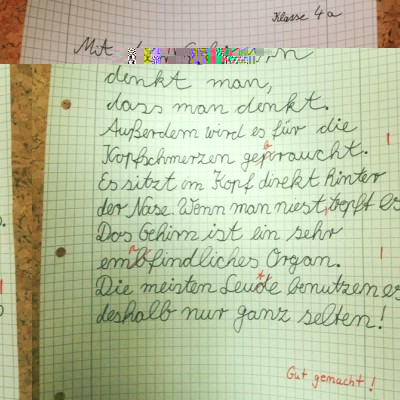 Klasse 4a
Mit
denkt man,
dass man denkt.
Außerdem wird es für die
Kopfschmerzen gepraucht.
Es sitzt im Kopf direkt hinter
der Nase. Wenn man niest, tropft es
Das Gehirn ist ein sehr
embfindliches Organ.
Die meisten Leude benutzen es
deshalb nur ganz selten!
Gut gemacht!